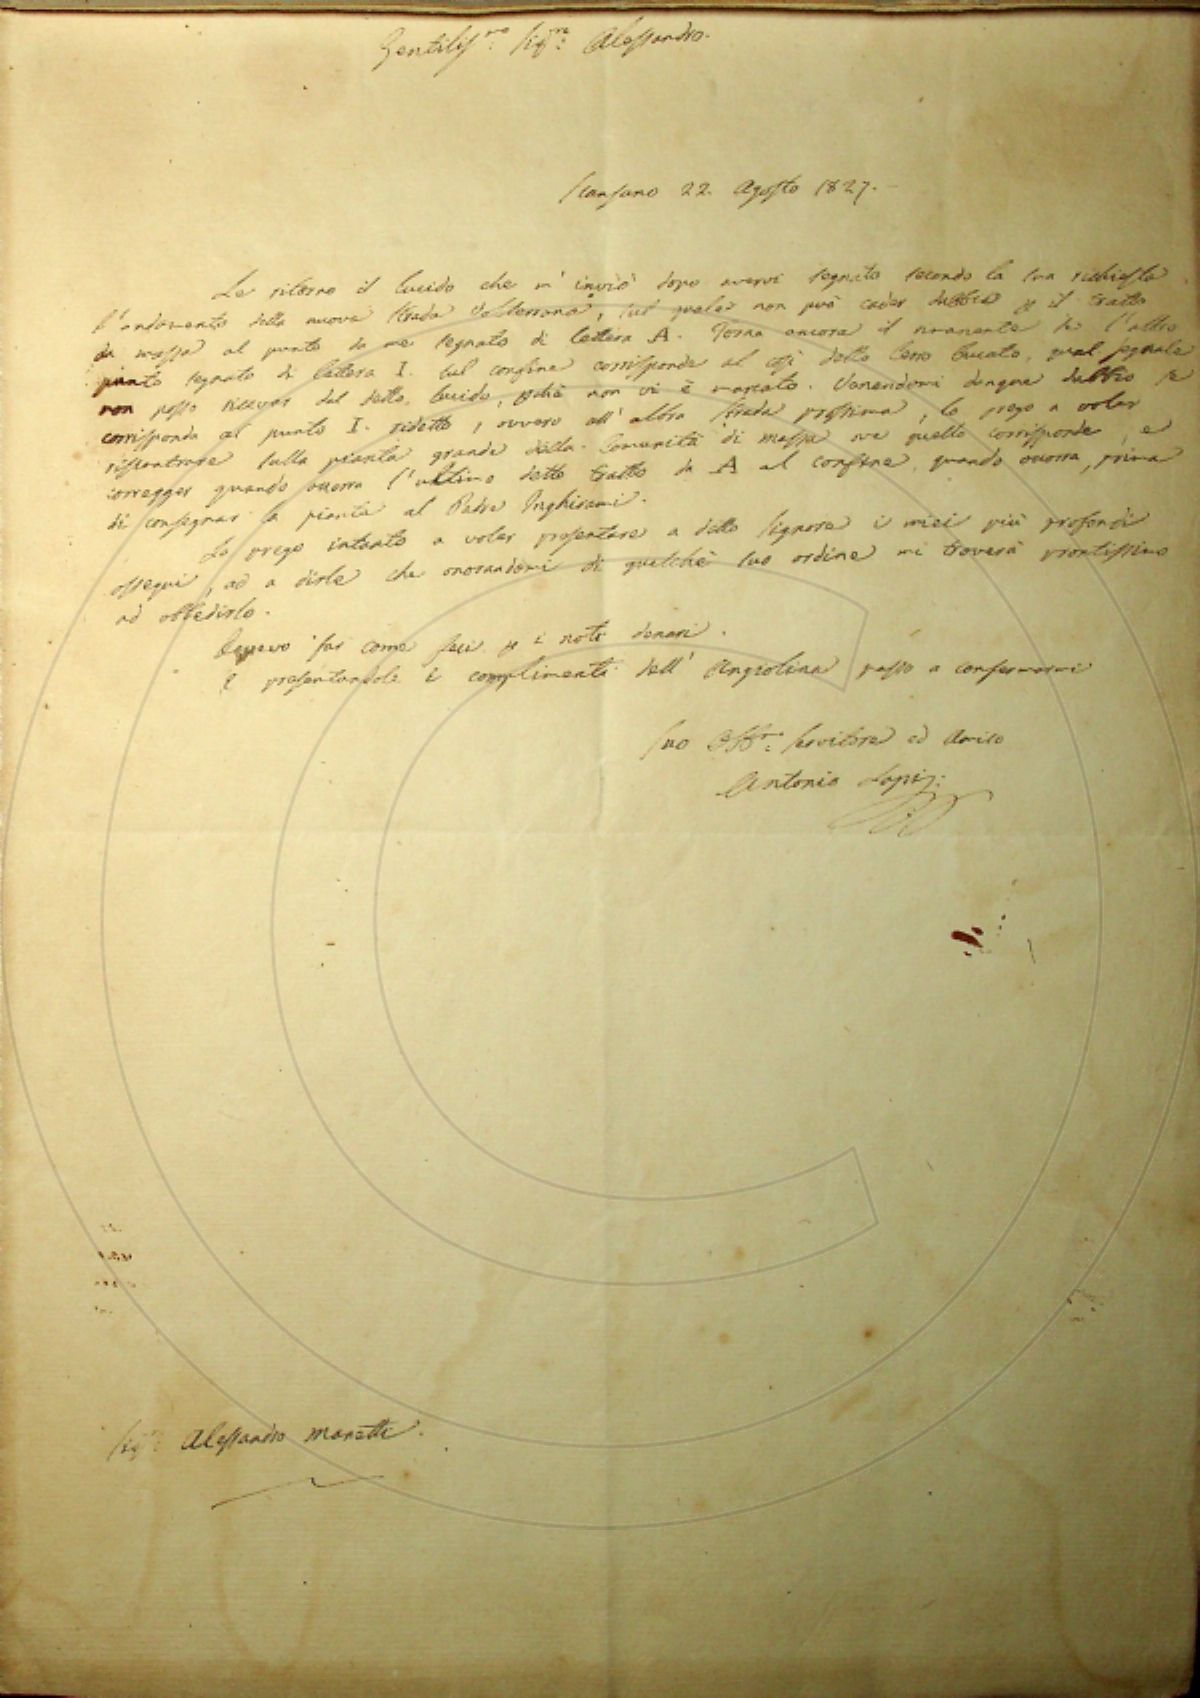 Gentilis.mo Sig.re Alessandro.
Scansano 22. Agosto 1827.
Le ritorno il lucido che m' inviò dopo avervi segnato secondo la sua richiesta
l'andamento della nuova Strada Volterrana, sul quale non può cader dubbio p il tratto
da massa al punto da me segnato di lettera A. Torna ancora il rimanente da l'altro
punto segnato di lettera I. sul confine corrisponde al così detto Cerro bucato, qual segnale
non posso ricever dal detto lucido, poichè non vi è marcato. Venendomi dunque dubbio se
corrisponda al punto I. sudetto, ovvero all' altra strada prossima, la prego a voler
riscontrare sulla pianta grande della Comunità di massa ove quello corrisponde, e
corregger quando occorra l'ultimo detto tratto da A al confine, quando occorra, prima
di consegnar la pianta al Padre Inghirami.
La prego intanto a voler presentare a detto Signore i miei più profondi
ossequi, ed a dirle che onorandomi di qualche suo ordine mi troverà prontissimo
ad obbedirlo.
far come feci p i noti denari.
E presentandole i complimenti dell' Angiolina passo a confermarmi
Suo Servitore ed Amico
Antonio Lapi:
Sig.re Alessandro Manetti.